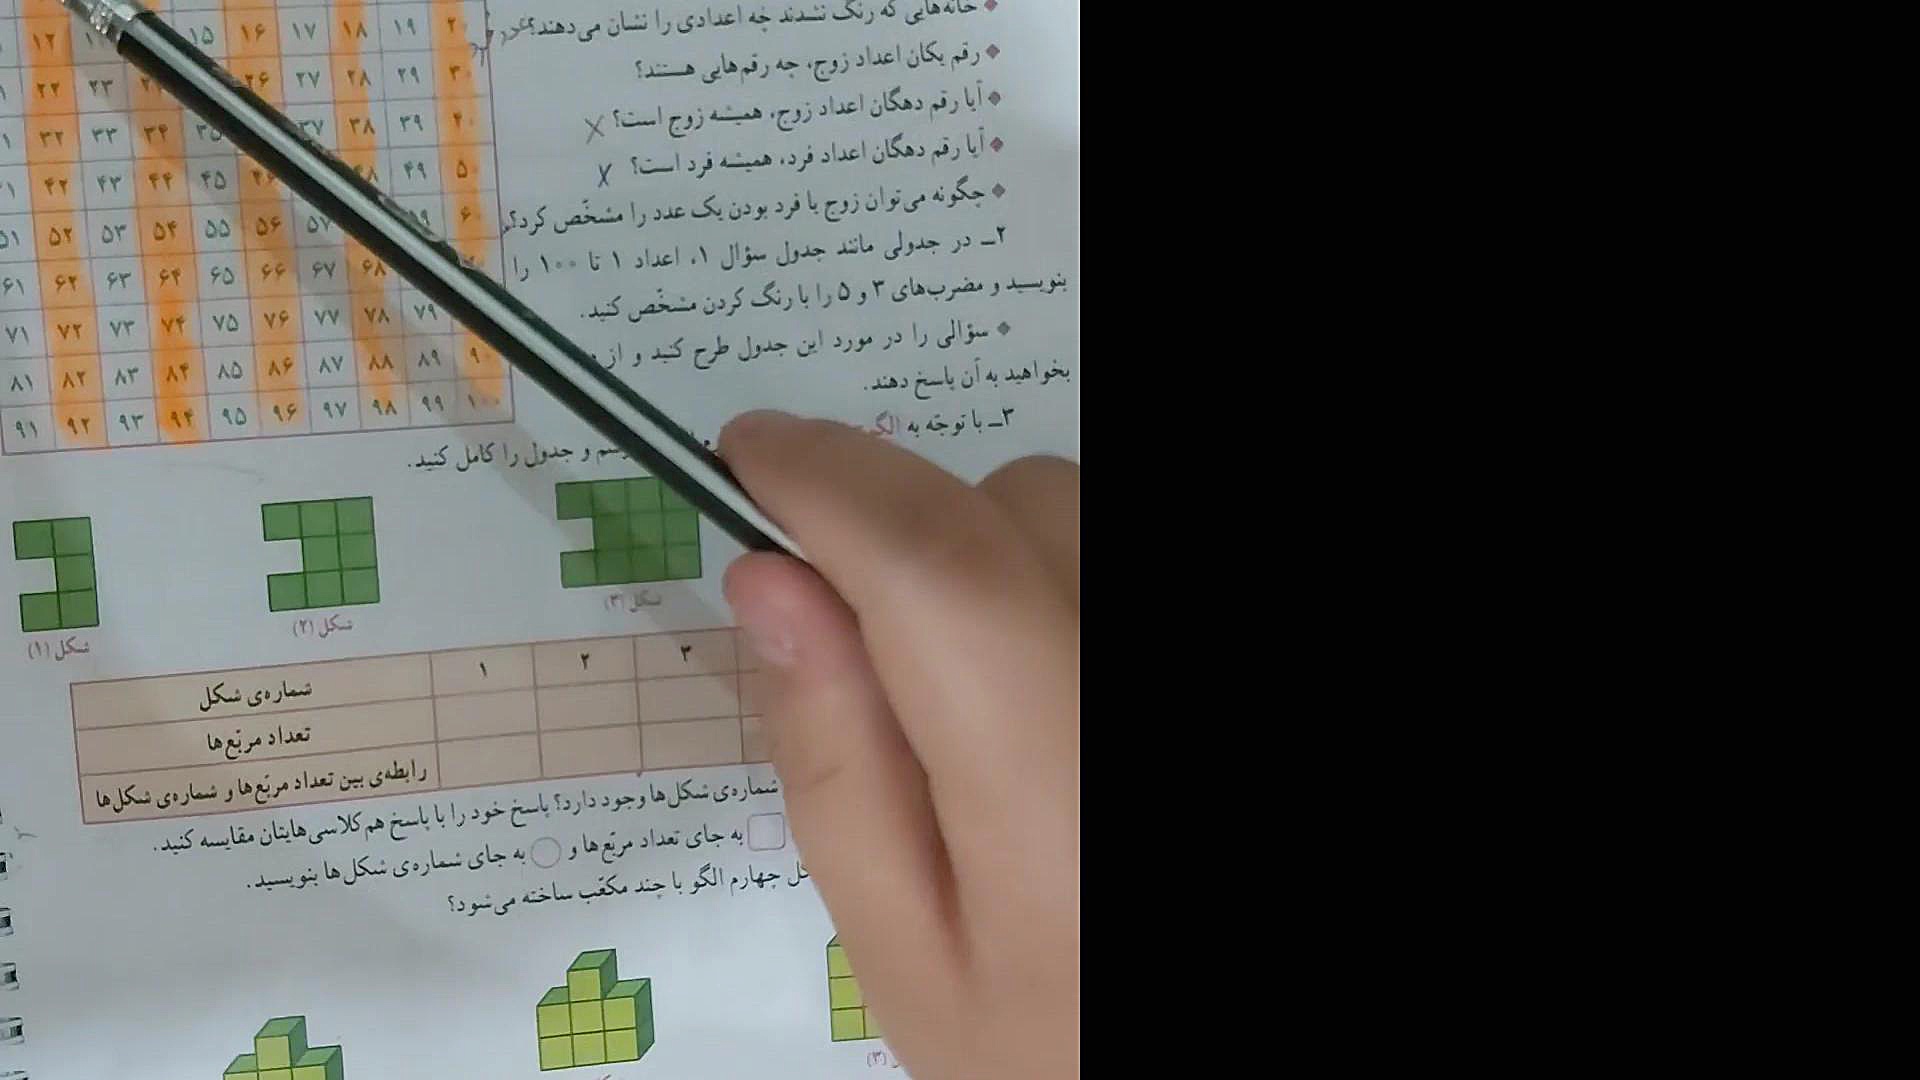 خانه‌هایی که رنگ نشدند چه اعدادی را نشان می‌دهند؟
رقم یکان اعداد زوج، چه رقم‌هایی هستند؟
آیا رقم دهگان اعداد زوج، همیشه زوج است؟ ×
آیا رقم دهگان اعداد فرد، همیشه فرد است؟ ×
چگونه می‌توان زوج یا فرد بودن یک عدد را مشخّص کرد؟
۲ــ در جدولی مانند جدول سؤال ۱، اعداد ۱ تا ۱۰۰ را
بنویسید و مضرب‌های ۳ و ۵ را با رنگ کردن مشخّص کنید.
سؤالی را در مورد این جدول طرح کنید و از
بخواهید به آن پاسخ دهند.
۱۲ ۱۵ ۱۶ ۱۷ ۱۸ ۱۹ ۲۰
۲۲ ۲۳ ۲۶ ۲۷ ۲۸ ۲۹ ۳۰
۳۲ ۳۳ ۳۴ ۳۵ ۳۷ ۳۸ ۳۹ ۴۰
۴۲ ۴۳ ۴۴ ۴۵ ۴۶ ۴۸ ۴۹ ۵۰
۵۱ ۵۲ ۵۳ ۵۴ ۵۵ ۵۶ ۵۷ ۵۹ ۶۰
۶۱ ۶۲ ۶۳ ۶۴ ۶۵ ۶۶ ۶۷ ۶۸
۷۱ ۷۲ ۷۳ ۷۴ ۷۵ ۷۶ ۷۷ ۷۸ ۷۹
۸۱ ۸۲ ۸۳ ۸۴ ۸۵ ۸۶ ۸۷ ۸۸ ۸۹ ۹۰
۹۱ ۹۲ ۹۳ ۹۴ ۹۵ ۹۶ ۹۷ ۹۸ ۹۹ ۱۰۰
۳ــ با توجّه به
و جدول را کامل کنید.
شکل (۱) شکل (۲) شکل (۳)
شماره‌ی شکل ۱ ۲ ۳
تعداد مربّع‌ها
رابطه‌ی بین تعداد مربّع‌ها و شماره‌ی شکل‌ها
شماره‌ی شکل‌ها وجود دارد؟ پاسخ خود را با پاسخ هم‌کلاسی‌هایتان مقایسه کنید.
به جای تعداد مربّع‌ها و به جای شماره‌ی شکل‌ها بنویسید.
چهارم الگو با چند مکعّب ساخته می‌شود؟
(۳)